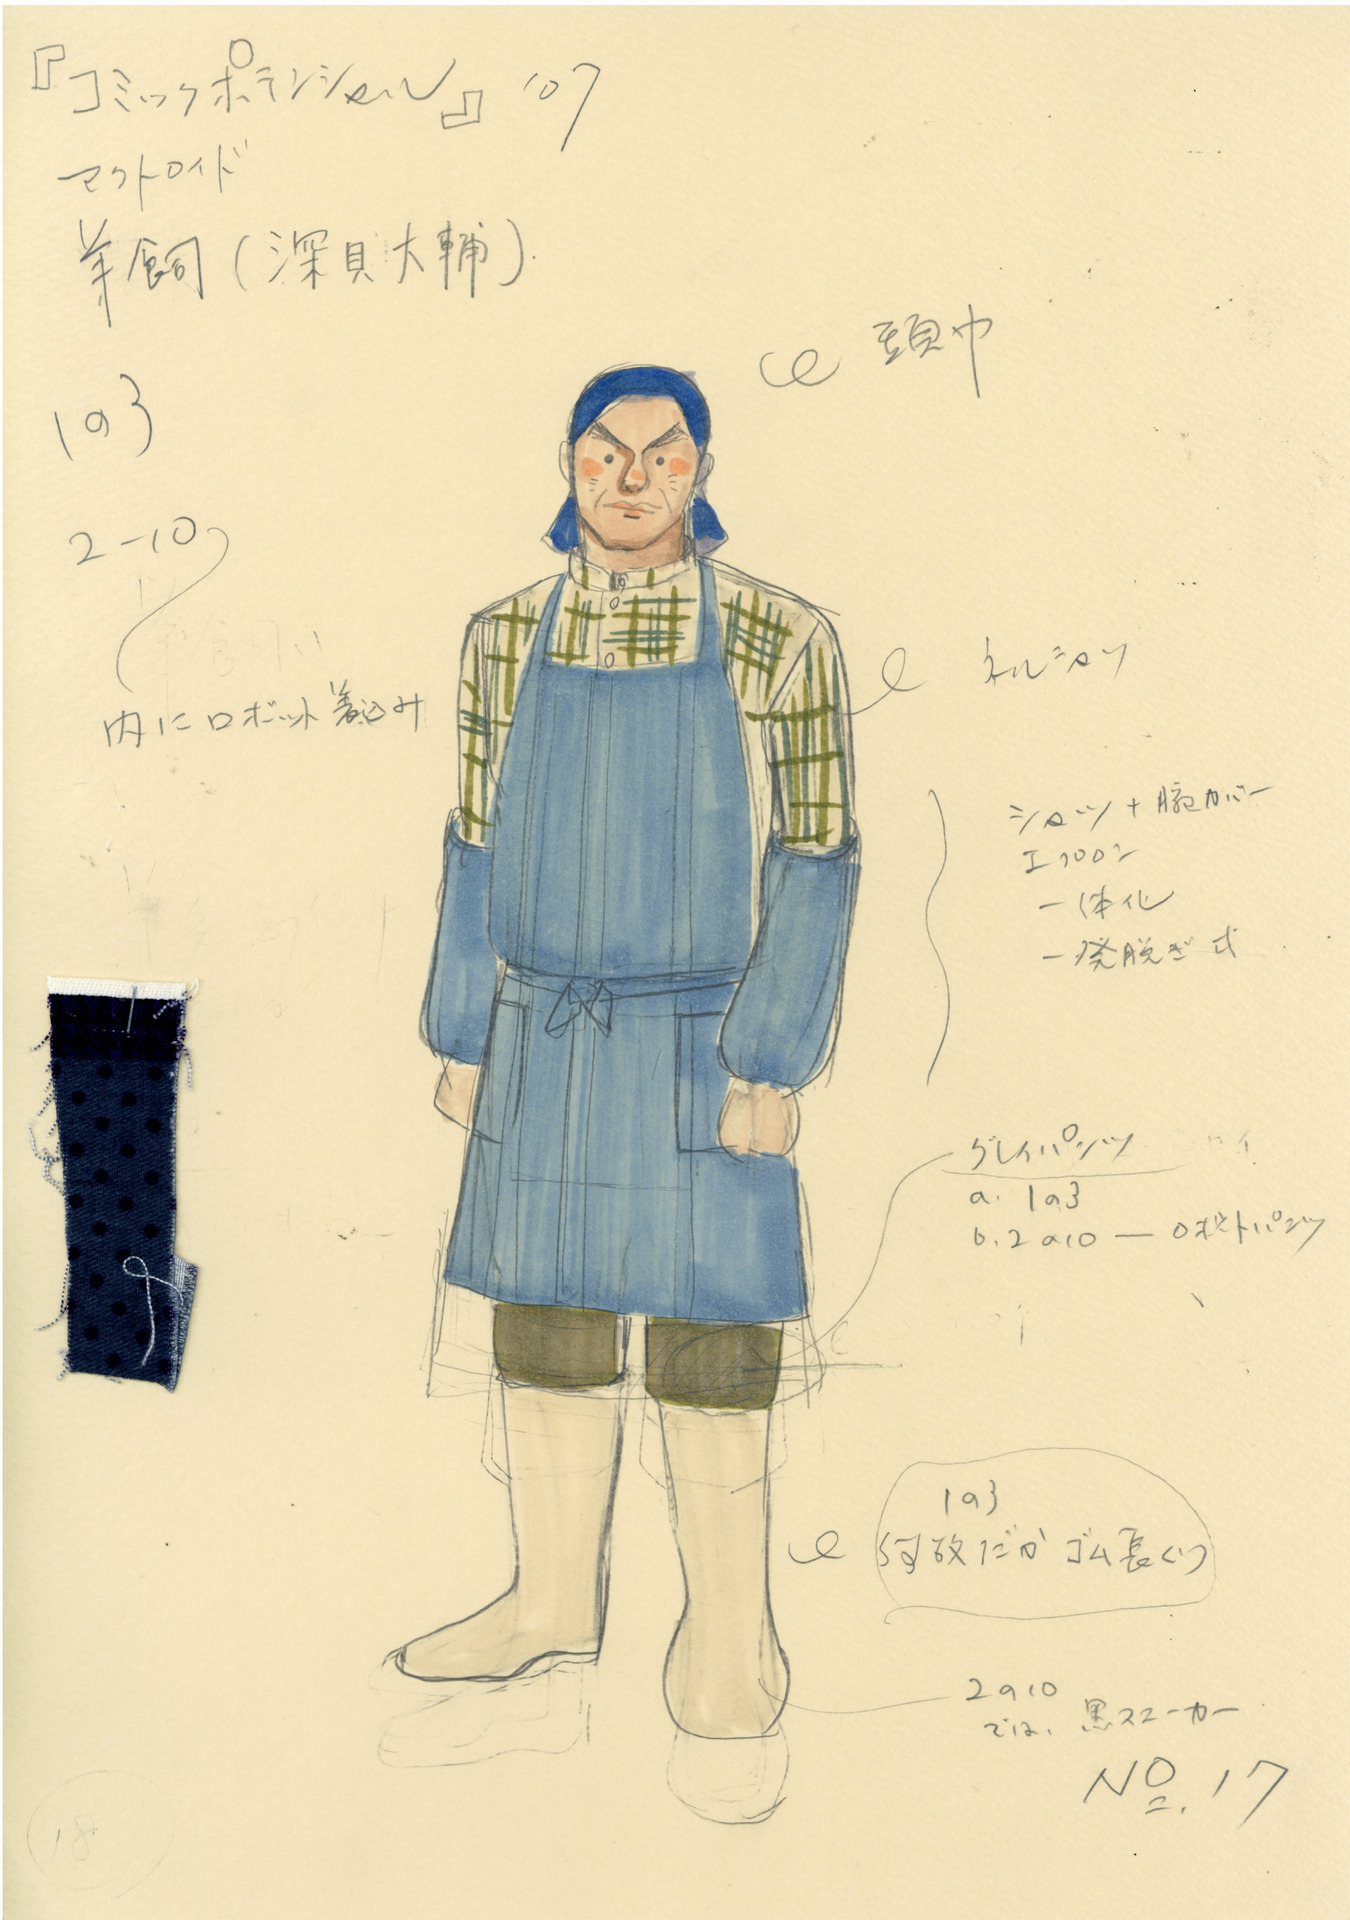 『コミックポテンシャル』 '07
アクトロイド
羊飼 (深貝大輔)
1の3
2-10
内にロボット着込み
頭巾
ネルシャツ
シャツ + 腕カバー
エプロン
一体化
一発脱ぎ式
グレイパンツ
a. 1の3
b. 2の10 — ロボットパンツ
1の3
何故だか ゴム長ぐつ
2の10
では、黒スニーカー
No. 17
18